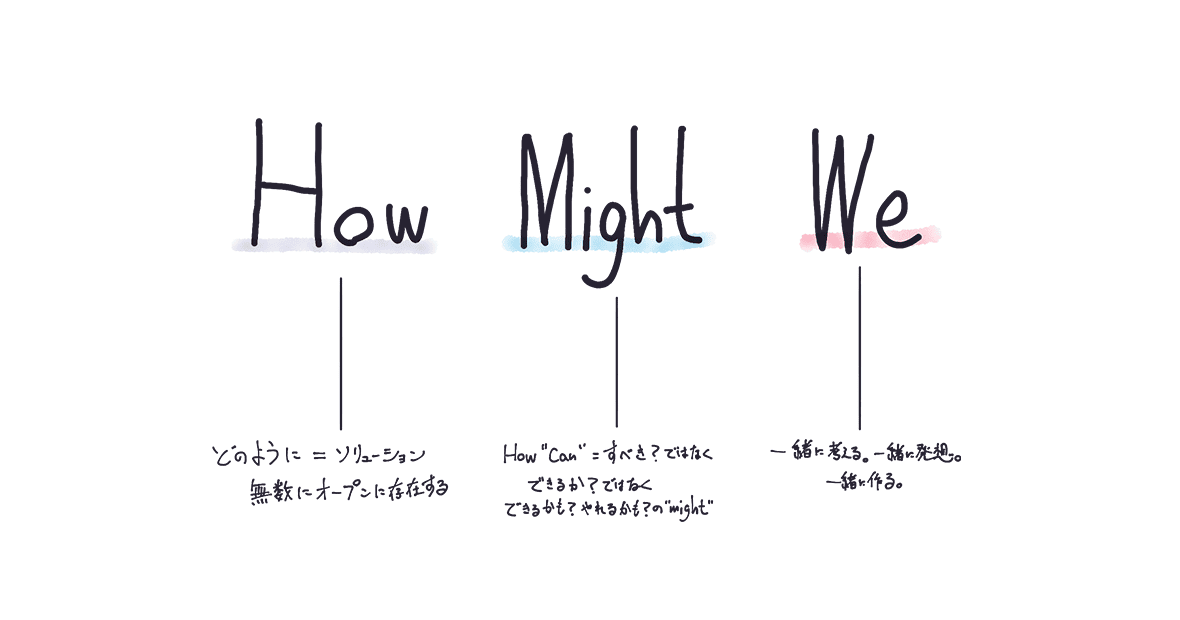 How Might We
どのように = ソリューション
無数にオープンに存在する
How "Can" = すべき?ではなく
できるか?ではなく
できるかも?やれるかも?の"might"
一緒に考える。一緒に発想。。
一緒に作る。